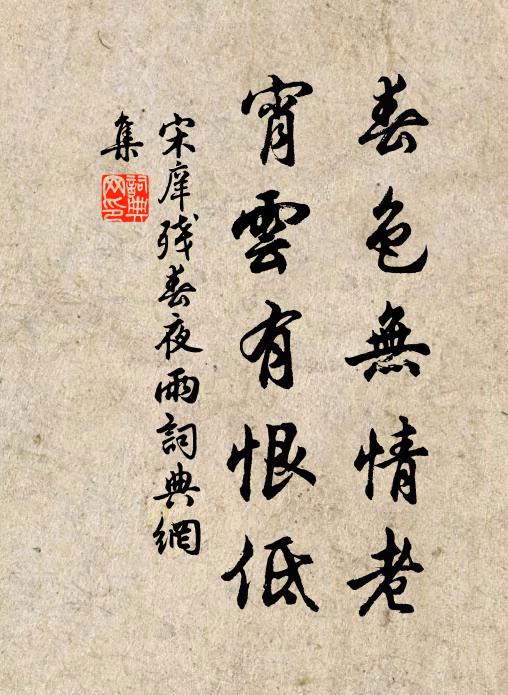 春色無情老
宵雲有恨低
宋庠殘春夜雨詞典網
集
詞典
网印